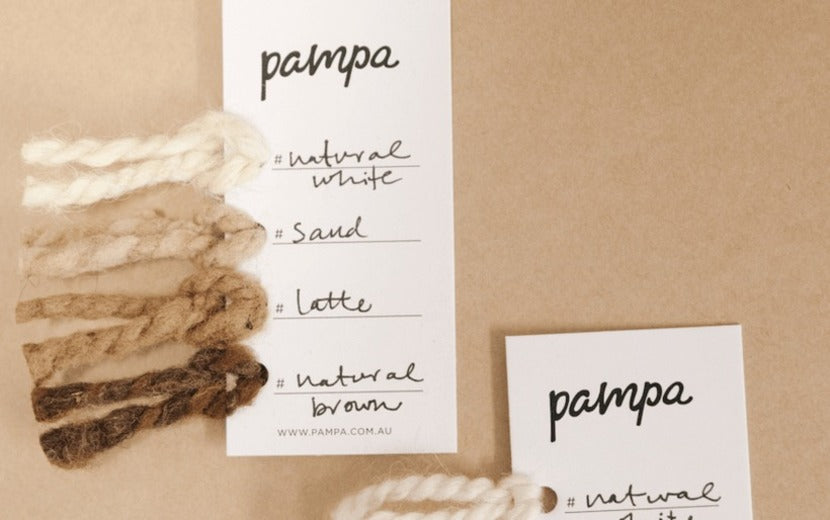 pampa
# natural
white
# sand
# latte
# natural
brown
WWW.PAMPA.COM.AU
pampa
# natural
white